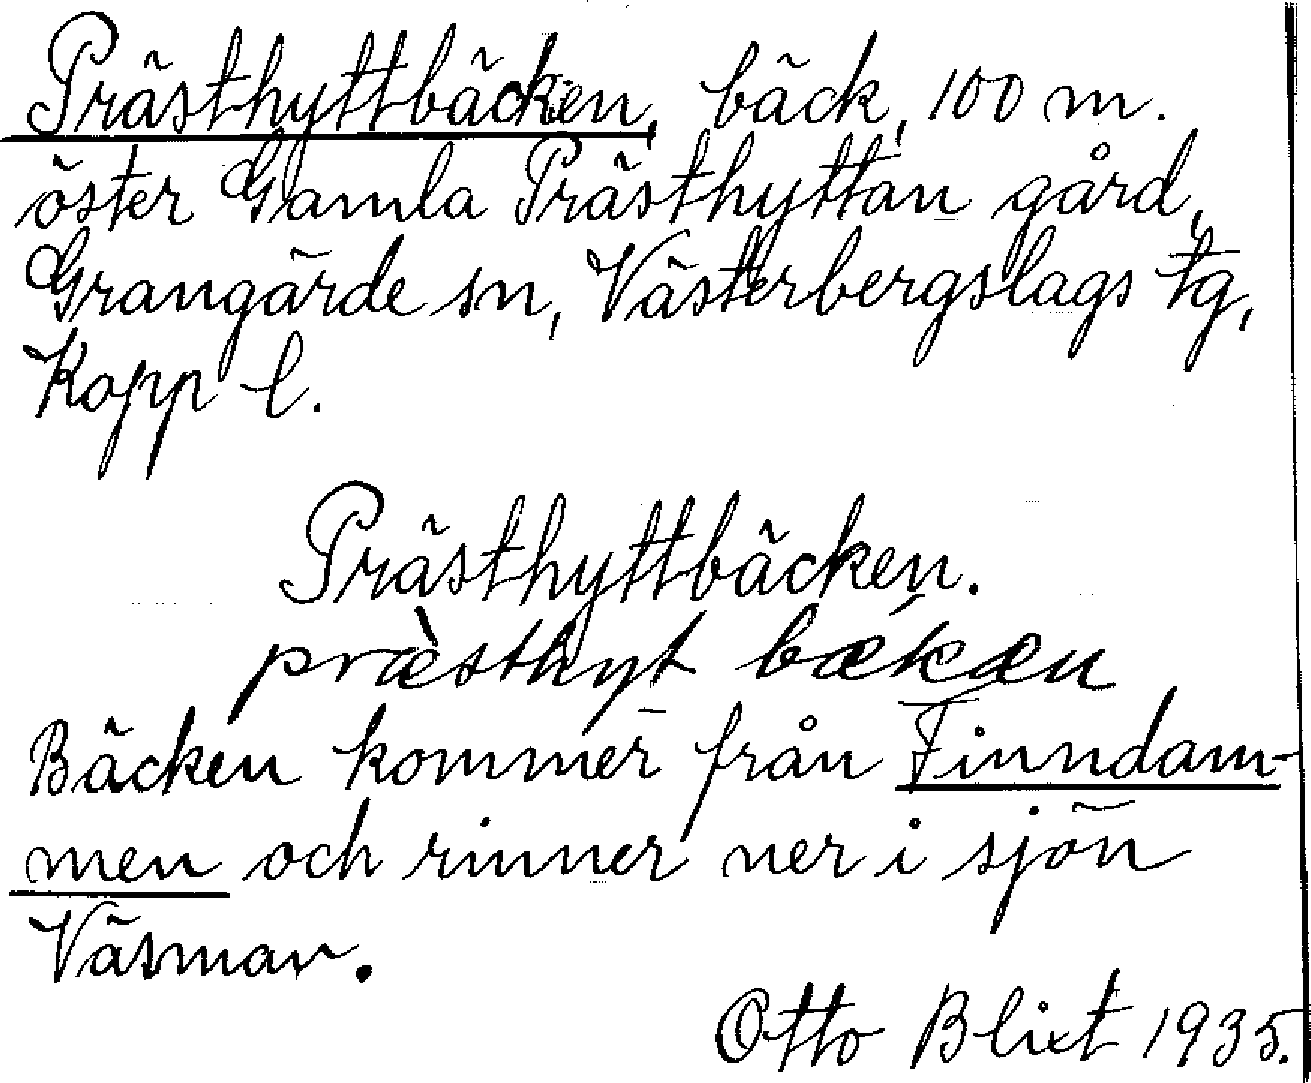 Prästhyttbäcken, bäck, 100 m.
öster Gamla Prästhyttan gård,
Grangärde sn, Västerbergslags tg,
Kopp l.
Prästhyttbäcken.
præ̀sthyt bækæn
Bäcken kommer från Finndam-
men och rinner ner i sjön
Väsman.
Otto Blixt 1935.